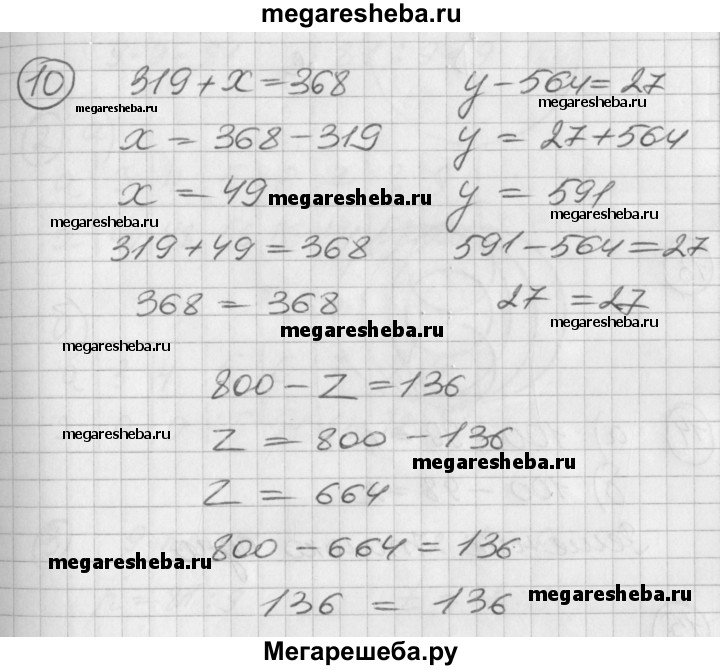 megaresheba.ru
10 319 + x = 368 y - 564 = 27
megaresheba.ru megaresheba.ru
x = 368 - 319 y = 27 + 564
x = 49 megaresheba.ru y = 591
megaresheba.ru megaresheba.ru
319 + 49 = 368 591 - 564 = 27
368 = 368 27 = 27
megaresheba.ru megaresheba.ru
megaresheba.ru
800 - z = 136
megaresheba.ru z = 800 - 136
megaresheba.ru
z = 664
800 - 664 = 136
megaresheba.ru
136 = 136 megaresheba.ru
Мегарешеба.ру